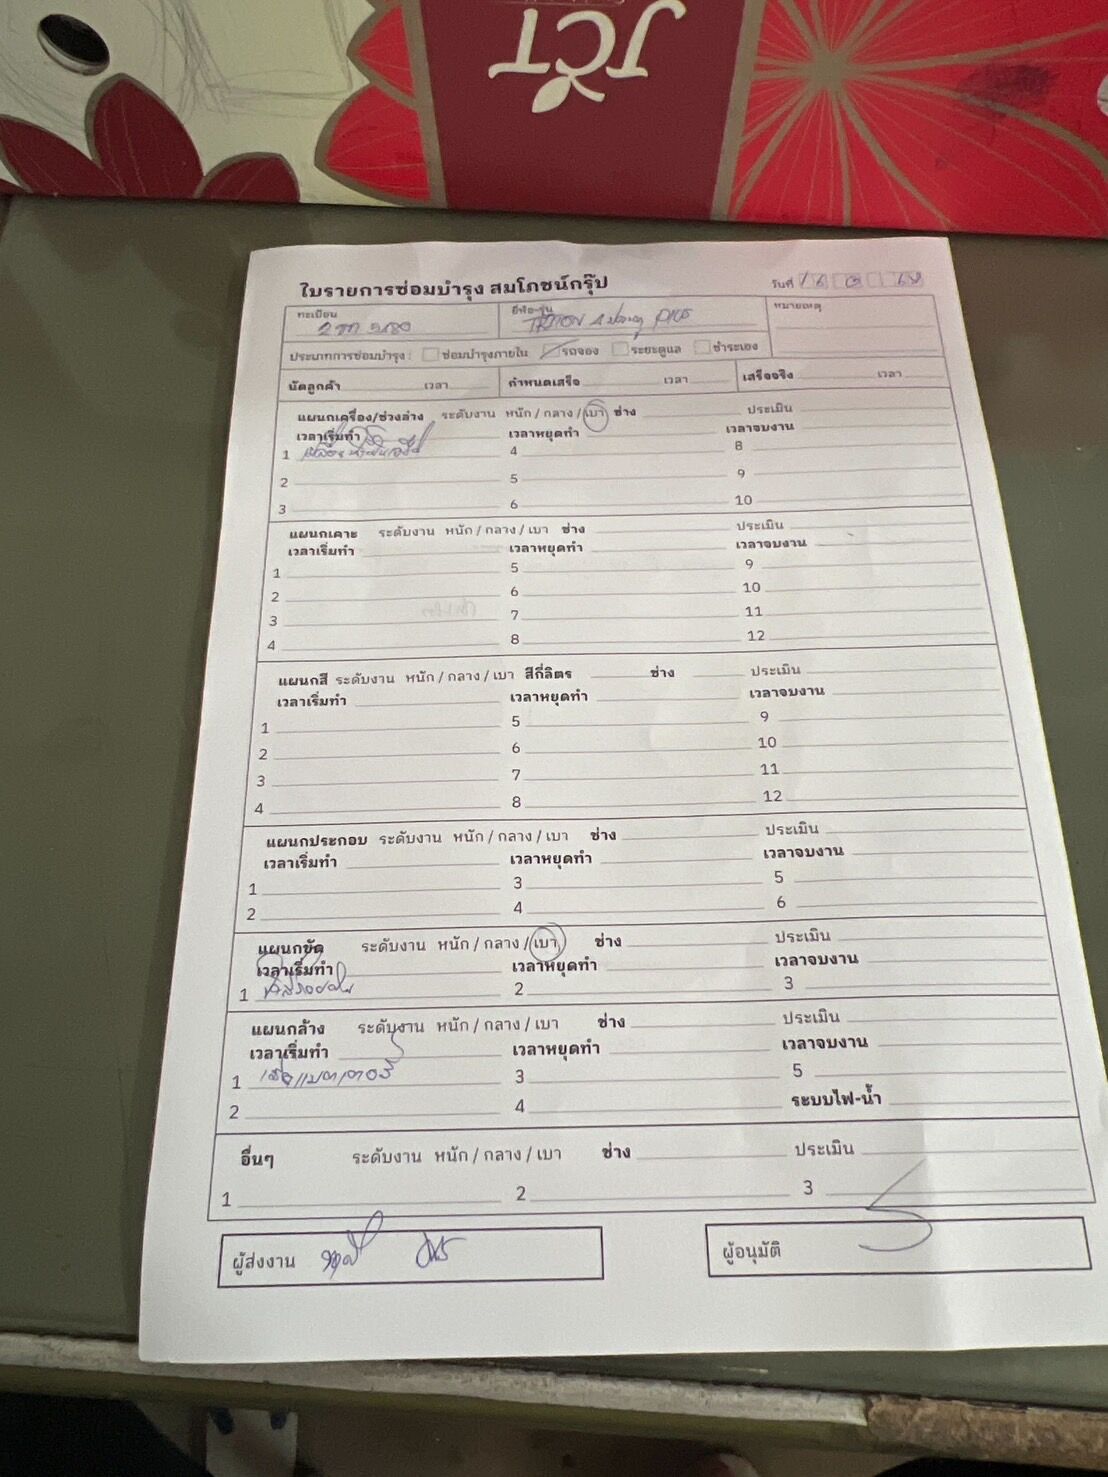 JCT
ใบรายการซ่อมบำรุง สมโภชน์กรุ๊ป วันที่ 16
ทะเบียน ยี่ห้อ-รุ่น หมายเหตุ
TRITON 4 ประตู PLUS
ประเภทการซ่อมบำรุง : ซ่อมบำรุงภายใน รถจอง ระยะดูแล ชำระเอง
นัดลูกค้า เวลา กำหนดเสร็จ เวลา เสร็จจริง เวลา
แผนกเครื่อง/ช่วงล่าง ระดับงาน หนัก / กลาง / เบา ช่าง ประเมิน
เวลาเริ่มทำ เวลาหยุดทำ เวลาจบงาน
1 4 8
2 5 9
3 6 10
แผนกเคาะ ระดับงาน หนัก / กลาง / เบา ช่าง ประเมิน
เวลาเริ่มทำ เวลาหยุดทำ เวลาจบงาน
1 5 9
2 6 10
3 7 11
4 8 12
แผนกสี ระดับงาน หนัก / กลาง / เบา สีกี่ลิตร ช่าง ประเมิน
เวลาเริ่มทำ เวลาหยุดทำ เวลาจบงาน
1 5 9
2 6 10
3 7 11
4 8 12
แผนกประกอบ ระดับงาน หนัก / กลาง / เบา ช่าง ประเมิน
เวลาเริ่มทำ เวลาหยุดทำ เวลาจบงาน
1 3 5
2 4 6
แผนกขัด ระดับงาน หนัก / กลาง / เบา ช่าง ประเมิน
เวลาเริ่มทำ เวลาหยุดทำ เวลาจบงาน
1 2 3
แผนกล้าง ระดับงาน หนัก / กลาง / เบา ช่าง ประเมิน
เวลาเริ่มทำ เวลาหยุดทำ เวลาจบงาน
1 3 5
2 4 ระบบไฟ-น้ำ
อื่นๆ ระดับงาน หนัก / กลาง / เบา ช่าง ประเมิน
1 2 3
ผู้ส่งงาน ผู้อนุมัติ